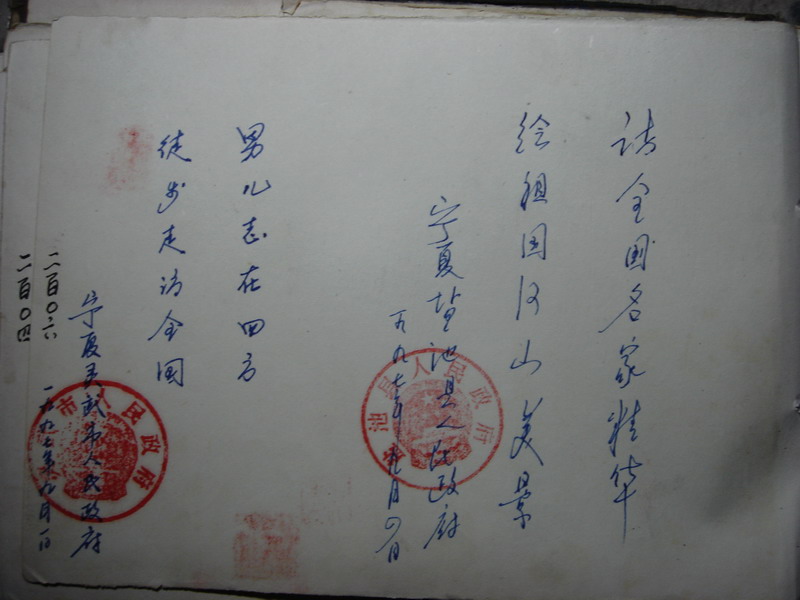 请全国名家精华
绘祖国河山美景
宁夏盐池县人民政府
一九九七年九月四日
池县人民政府
男儿志在四方
徒步走访全国
宁夏灵武市人民政府
一九九七年九月一日
市人民政府
二百〇六
二百〇四